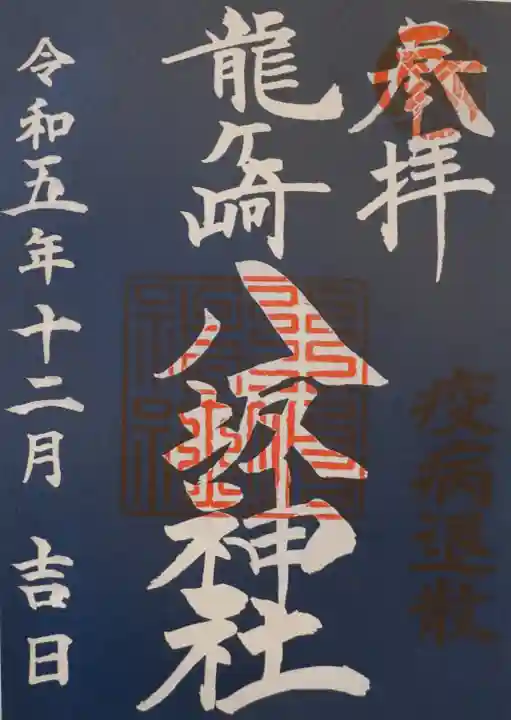 奉拝
疫病退散
龍ヶ崎
八坂神社
令和五年十二月 吉日